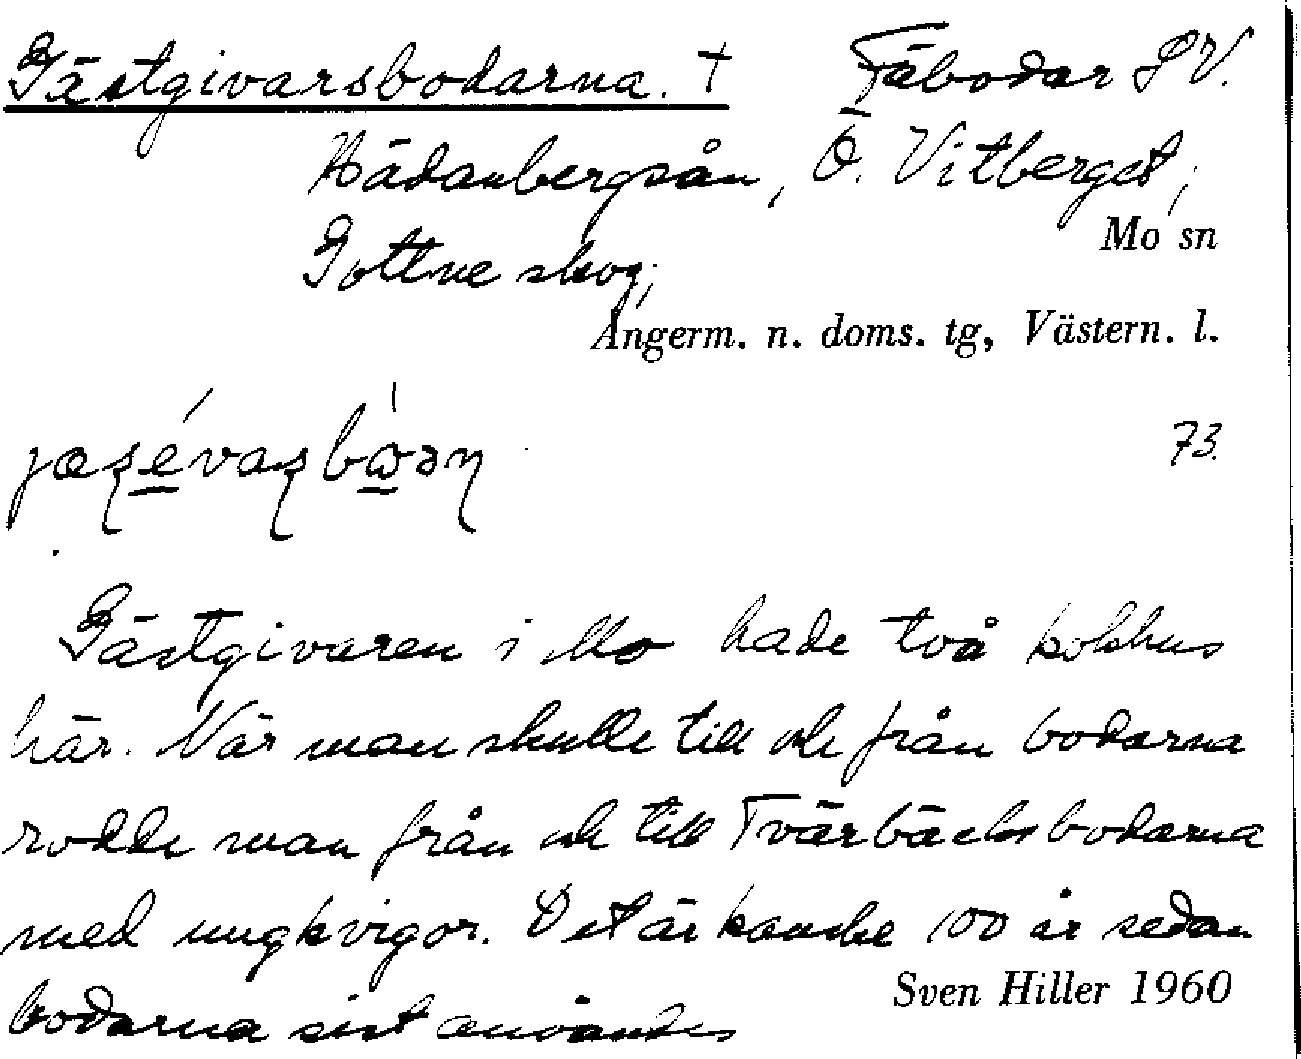 Gästgivarsbodarna. † Fäbodar SV.
Nädanbergsån, Ö. Vitberget,
Mo sn
Gottne skog,
Ångerm. n. doms. tg, Västern. l.
73.
Gästgivaren i Mo hade två kokhus
här. När man skulle till och från bodarna
rodde man från och till Tvärbäcksbodarna
med ungkvigor. Det är kanske 100 år sedan
bodarna sist användes
Sven Hiller 1960